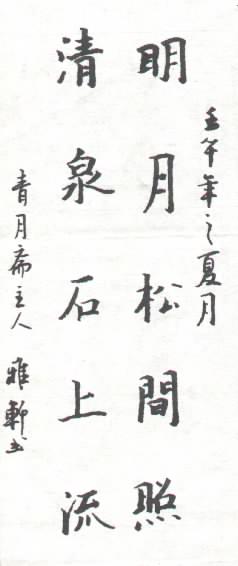 壬午年之夏月
明月松間照
清泉石上流
青月斋主人 雅軒书